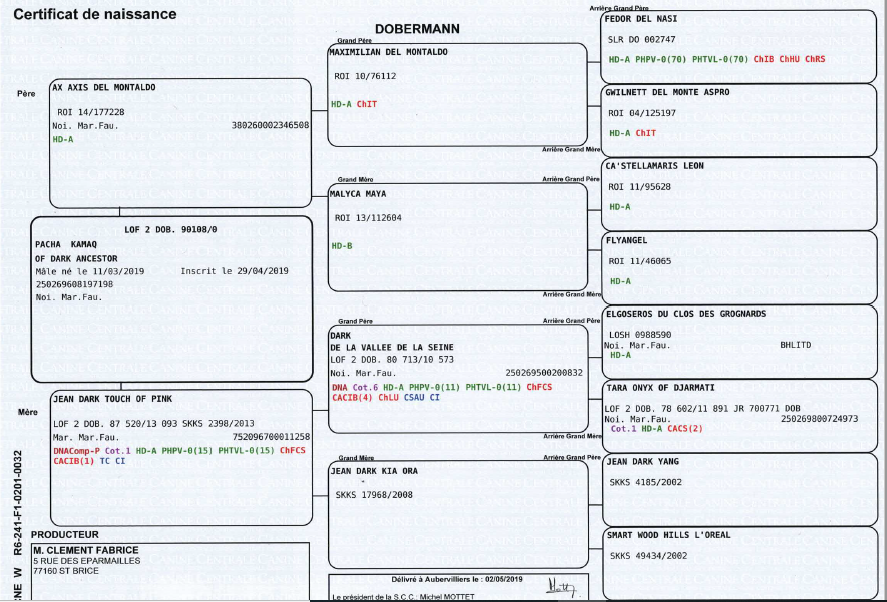 Certificat de naissance
DOBERMANN
Père
AX AXIS DEL MONTALDO
ROI 14/177228
Noi. Mar.Fau. 380260002346508
HD-A
LOF 2 DOB. 90108/0
PACHA KAMAQ
OF DARK ANCESTOR
Mâle né le 11/03/2019 Inscrit le 29/04/2019
250269608197198
Noi. Mar.Fau.
Mère
JEAN DARK TOUCH OF PINK
LOF 2 DOB. 87 520/13 093 SKKS 2398/2013
Mar. Mar.Fau. 752096700011258
DNAComp-P Cot.1 HD-A PHPV-0(15) PHTVL-0(15) ChFCS
CACIB(1) TC CI
R6-241-F1-0201-0032
NE W
PRODUCTEUR
M. CLEMENT FABRICE
5 RUE DES EPARMAILLES
77160 ST BRICE
Grand Père
MAXIMILIAN DEL MONTALDO
ROI 10/76112
HD-A ChIT
Arrière Grand Mère
Grand Mère
Arrière Grand Père
MALYCA MAYA
ROI 13/112604
HD-B
Arrière Grand Mère
Grand Père
Arrière Grand Père
DARK
DE LA VALLEE DE LA SEINE
LOF 2 DOB. 80 713/10 573
Noi. Mar.Fau. 250269500200832
DNA Cot.6 HD-A PHPV-0(11) PHTVL-0(11) ChFCS
CACIB(4) ChLU CSAU CI
Arrière Grand Mère
Grand Mère
Arrière Grand Père
JEAN DARK KIA ORA
SKKS 17968/2008
Délivré à Aubervilliers le : 02/05/2019
Le président de la S.C.C.: Michel MOTTET
Arrière Grand Père
FEDOR DEL NASI
SLR DO 002747
HD-A PHPV-0(70) PHTVL-0(70) ChIB ChHU ChRS
GWILNETT DEL MONTE ASPRO
ROI 04/125197
HD-A ChIT
CA'STELLAMARIS LEON
ROI 11/95628
HD-A
FLYANGEL
ROI 11/46065
HD-A
ELGOSEROS DU CLOS DES GROGNARDS
LOSH 0988590
Noi. Mar.Fau. BHLITD
HD-A
TARA ONYX OF DJARMATI
LOF 2 DOB. 78 602/11 891 JR 700771 DOB
Noi. Mar.Fau. 250269800724973
Cot.1 HD-A CACS(2)
JEAN DARK YANG
SKKS 4185/2002
SMART WOOD HILLS L'OREAL
SKKS 49434/2002